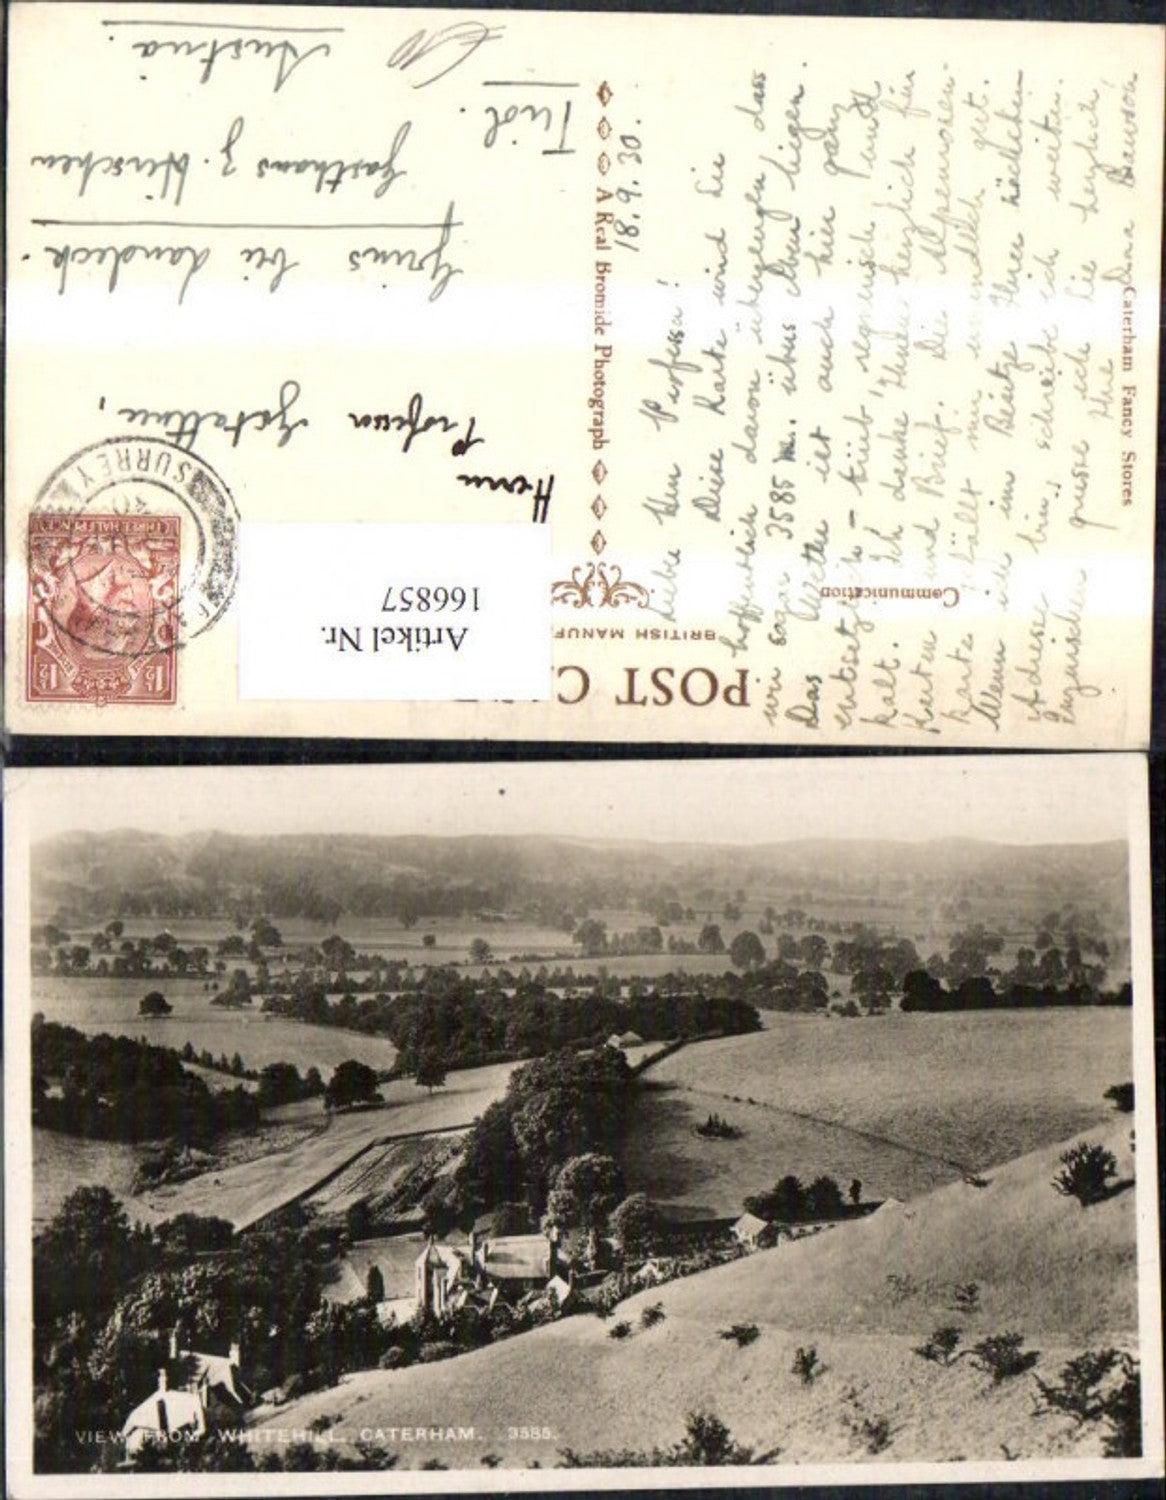 POST CA
BRITISH MANUF
Communication
A Real Bromide Photograph
Caterham Fancy Stores
18.9.30.
Lieber Herr Professor!
Diese Karte wird Sie
hoffentlich davon überzeugen dass
wir sogar 3585 m. über dem liegen.
Das Wetter ist auch hier ganz
entsetzlich - trüb, regnerisch und
kalt. Ich danke Ihnen herzlich für
Karten und Brief. Die Alpenrosen-
karte gefällt mir unendlich gut.
Wenn ich im Besitz Ihrer nächsten
Adresse bin, schreibe ich weiter.
Inzwischen grüsse ich Sie herzlich,
Ihre Dina Dawson
Herrn
Professor
Grins bei Landeck.
Gasthaus z. Hirschen
Tirol.
Austria.
SURREY
THREE HALF PENCE
1½ 1½
Artikel Nr.
166857
VIEW FROM WHITEHILL. CATERHAM. 3585.